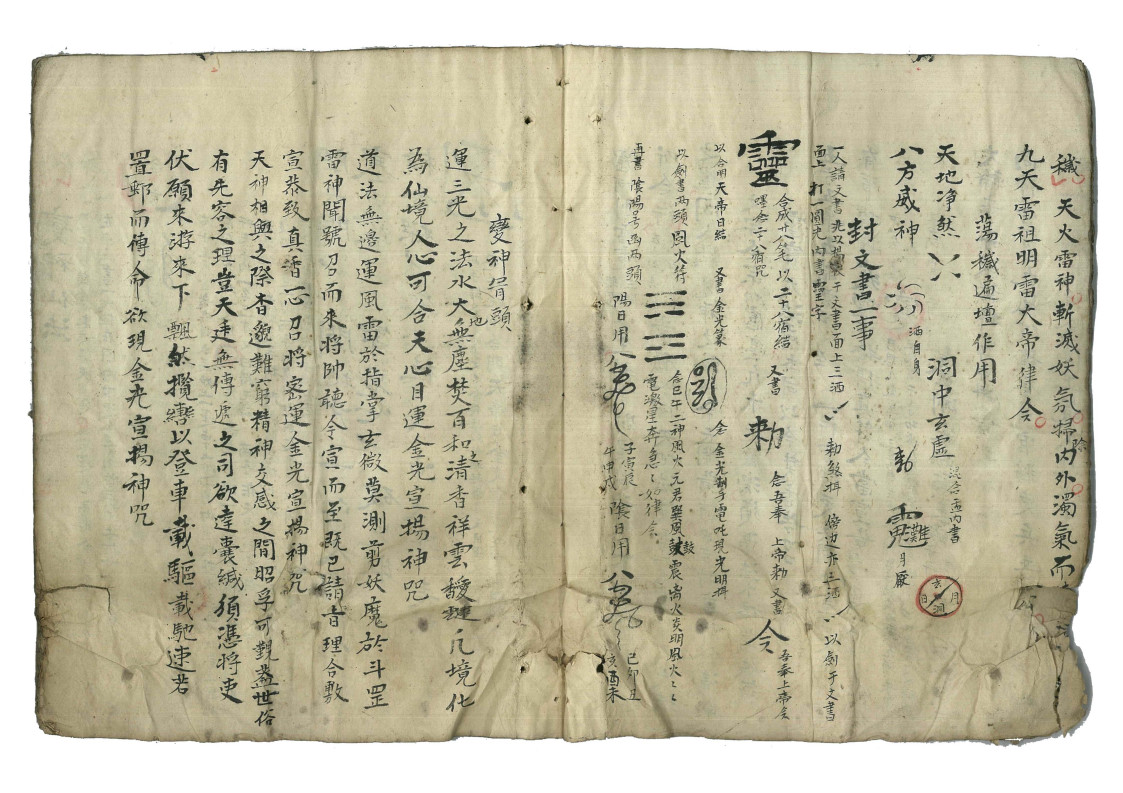 穢天火雷神斬滅妖氛掃除內外濁氣而
九天雷祖明雷大帝律令
蕩穢遍壇作用
天地净然 洞中玄虛 混合盂内書
八方威神 洒自身 勅 月廠
封文書一事
一人請文書 于文書面上三洒 勅煞揖 傍边亦三洒 以劍于文書
面上 打一圓光 内書靈字
靈 念成十八毛 以二十八宿結 又書 勅 念吾奉 上帝勅 又書 令 吾奉上帝令
噀念二十八宿咒
以合明天帝日結 又書金光篆 念 金光 電吒現光明揖
以劍書两頭風火符 念巳午二神風火元君 風鼓震雷火炎明風火
電 星奔急〻如律令
再書陰陽号函两頭 陽日用 子寅辰午申戌 陰日用 巳卯丑亥酉未
變神冐頭
運三光之法水大地無塵焚百和之清香祥雲靉靆凡境化
為仙境人心可合天心目運金光宣揚神咒
道法無邊運風雷於指掌玄微莫測剪妖魔於斗罡
雷神聞號召而来將帥聽令宣而至既已請音理合敷
宣恭致真香一心召將密運金光宣揚神咒
天神相與之際杳邈難窮精神交感之間昭孚可觀盖世俗
有先容之理豈天廷無傳逓之司欲達囊緘須憑將吏
伏願来游来下飄然攬轡以登車載驅載馳速若
置郵而傳命欲現金光宣揚神咒